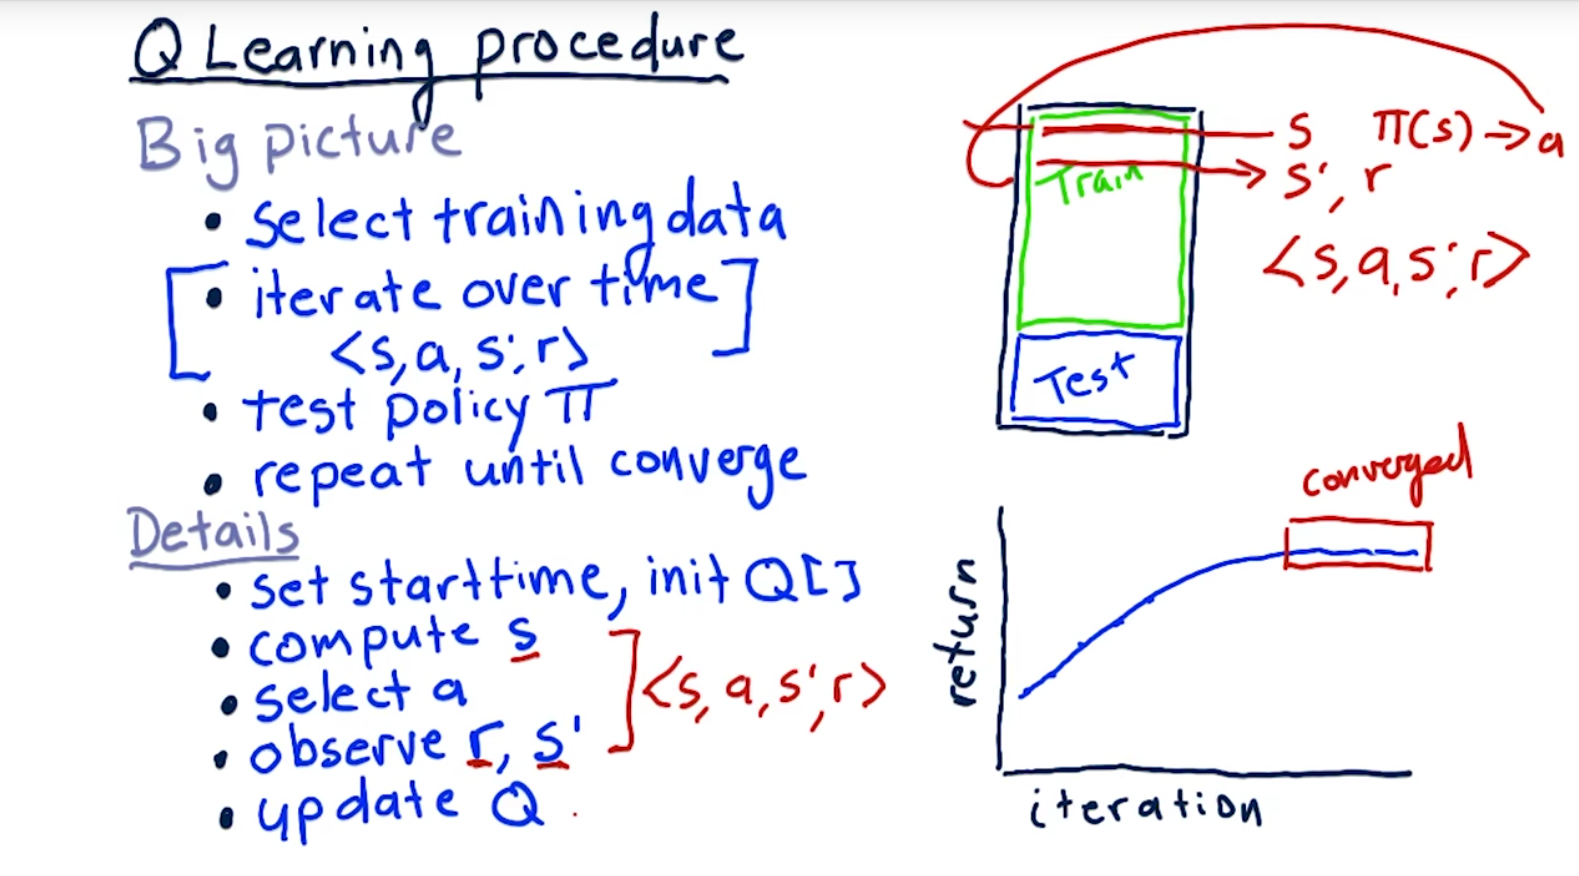 Q Learning procedure
Big picture
• select training data
• iterate over time
<s, a, s', r>
• test policy π
• repeat until converge
Details
• set starttime, init Q[]
• compute s
• select a
• observe r, s'
• update Q
<s, a, s', r>
s π(s) → a
s', r
<s, a, s', r>
Train
Test
converged
return
iteration